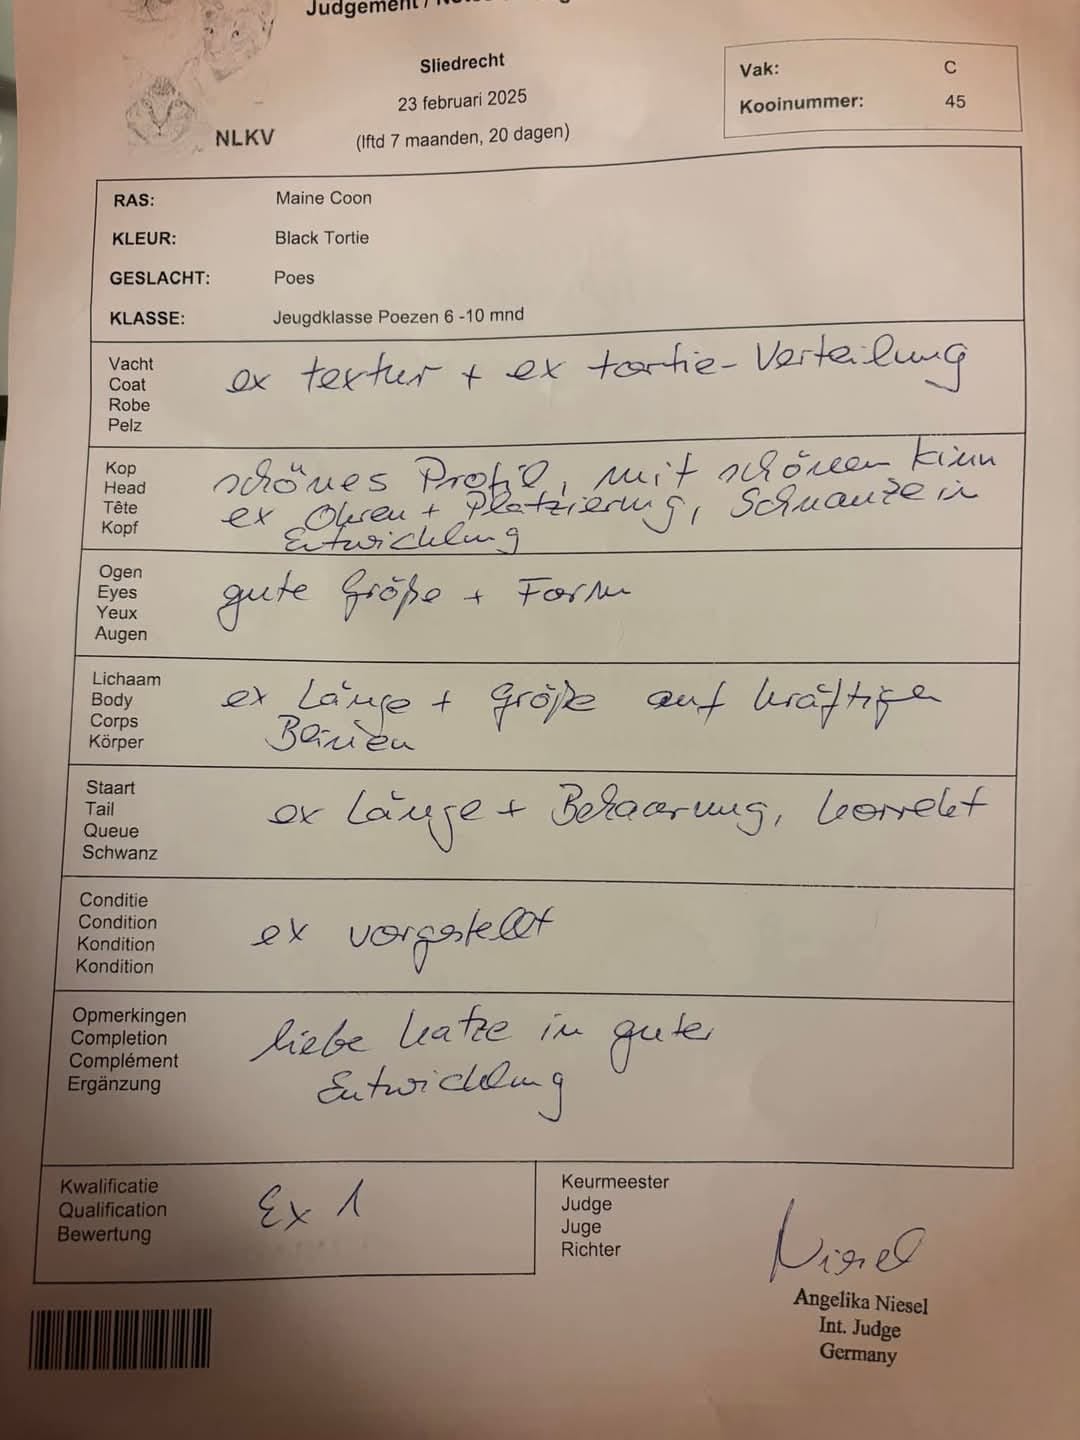 Judgement /
Sliedrecht
23 februari 2025
(lftd 7 maanden, 20 dagen)
NLKV
Vak: C
Kooinummer: 45
RAS: Maine Coon
KLEUR: Black Tortie
GESLACHT: Poes
KLASSE: Jeugdklasse Poezen 6 -10 mnd
Vacht
Coat
Robe
Pelz
ex textur + ex tortie-Verteilung
Kop
Head
Tête
Kopf
schönes Profil, mit schönen Kinn
ex Ohren + Platzierung, Schnauze in
Entwicklung
Ogen
Eyes
Yeux
Augen
gute Größe + Form
Lichaam
Body
Corps
Körper
ex Länge + Größe auf kräftigen
Beinen
Staart
Tail
Queue
Schwanz
ex Länge + Behaarung, korrekt
Conditie
Condition
Kondition
Kondition
ex vorgestellt
Opmerkingen
Completion
Complément
Ergänzung
liebe Katze in guter
Entwicklung
Kwalificatie
Qualification
Bewertung
Ex 1
Keurmeester
Judge
Juge
Richter
Niesel
Angelika Niesel
Int. Judge
Germany